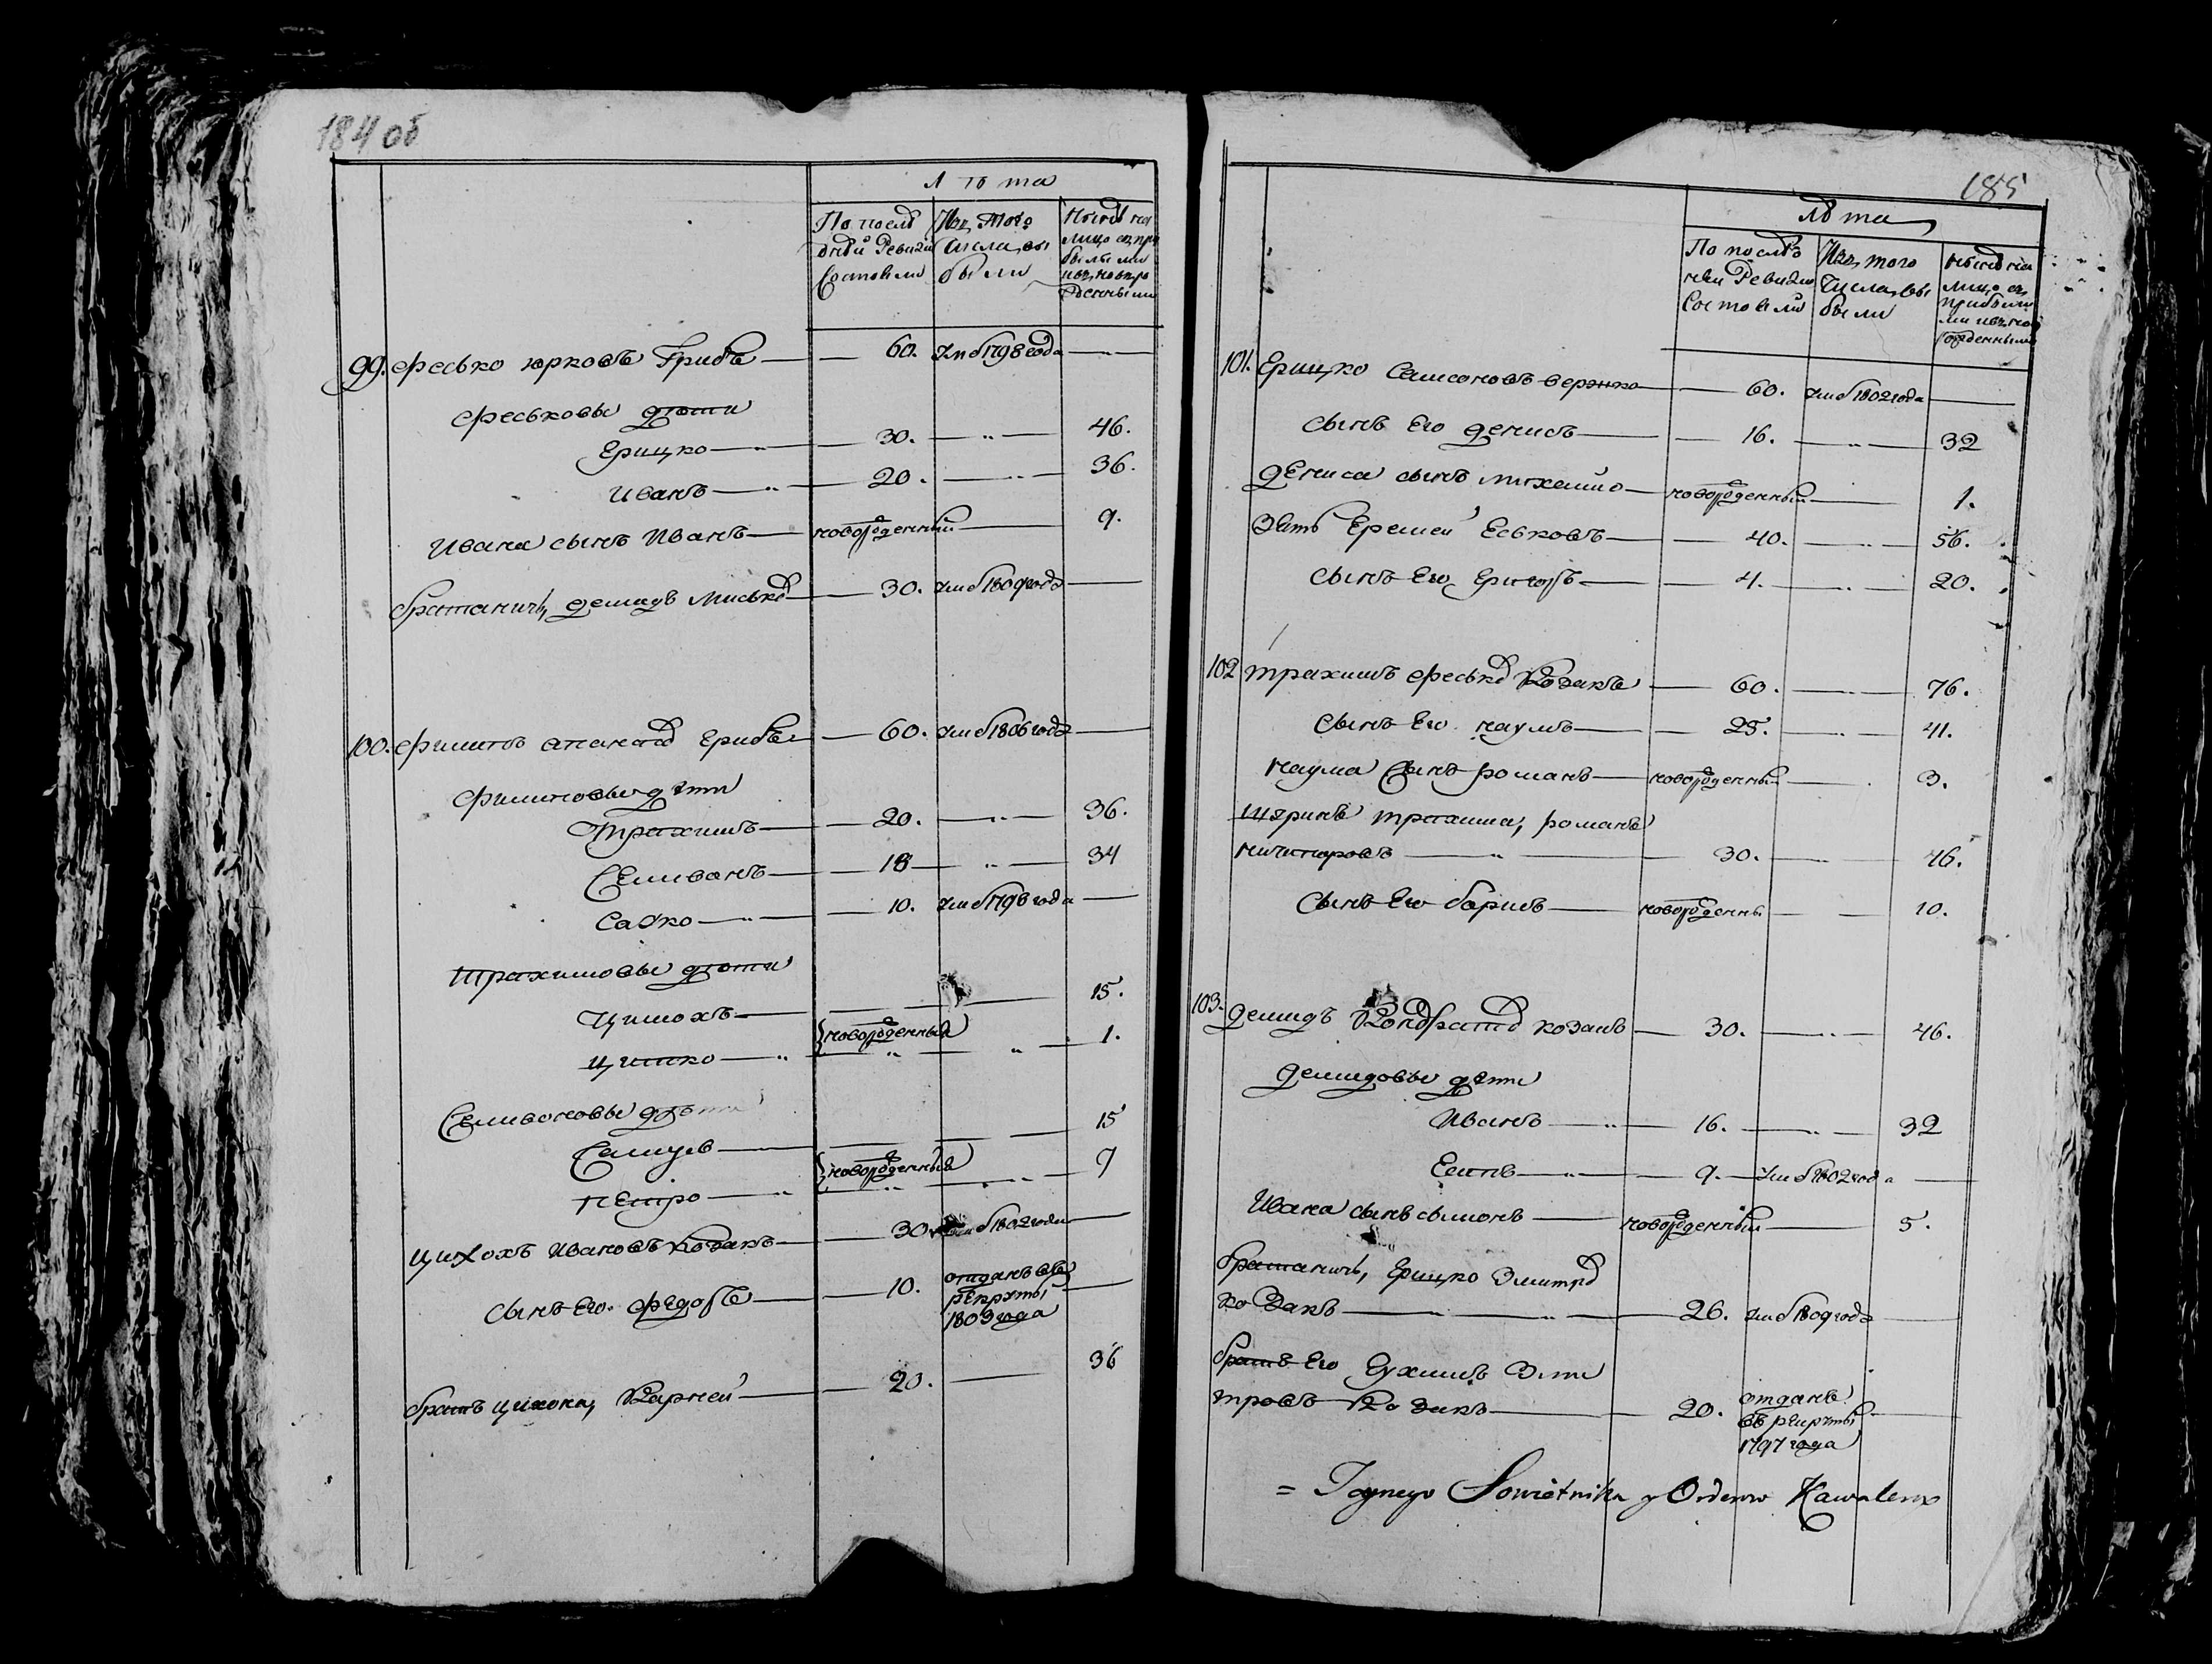 184 об
Лѣта
По послѣ Изъ того Нынѣ на
дней Ревизіи числа вы лицо съ при
состояли были былыми
и въ новоро
жденными
99. Фесько Юрковъ Грибъ 60. умеръ 1798 года
Феськовы дѣти
Грицко 30. 46.
Иванъ 20. 36.
Ивана сынъ Иванъ новорожденный 9.
братаничъ, Демидъ Миськовъ 30. умеръ 1809 года
100. Филипъ Апанасовъ Грибъ 60. умеръ 1806 года
Филиповы дѣти
Трахимъ 20. 36.
Селиванъ 18 34
Савко 10. умеръ 1796 года
Трахимовы дѣти
Цимохъ 15.
новорожденныя
Цишко 1.
Селивоновы дѣти
Самуевъ 15
новорожденныя
Петро 7
Цихохъ Ивановъ Козакъ 30. умеръ 1802 года
сынъ его Федоръ 10. отданъ въ
рекруты
1809 года
братъ Цихона, Карней 20. 36
185
Лѣта
По послѣд Изъ того Нынѣ на
ней Ревизіи числа вы лицо съ
состояли были прибылы
ми изъ ново
рожденными
101. Грицко Самсоновъ Вержко 60. умеръ 1802 года
сынъ его Денисъ 16. 32
Дениса сынъ Михайло новорожденный 1.
Зять Еремей Еськовъ 40. 56.
сынъ его Григоръ 4. 20.
102 Трахимъ Феськовъ Козакъ 60. 76.
сынъ его Наумъ 25. 41.
Наума сынъ Романъ новорожденный 3.
Щуринъ Трахима, Романъ
Ничипоровъ 30. 46.
сынъ его Борисъ новорожденны 10.
103. Демидъ Кондратовъ Козакъ 30. 46.
Демидовы дѣти
Иванъ 16. 32
Есипъ 9. умеръ 1802 года
Ивана сынъ Сымонъ новорожденный 5.
братаничъ, Грицко Змитровъ
Козакъ 26. умеръ 1809 года
братъ его Еухимъ Зми
тровъ Козакъ 20. отданъ
въ рекруты
1797 года
= Taynego Sowietnika y Orderow Kawalera